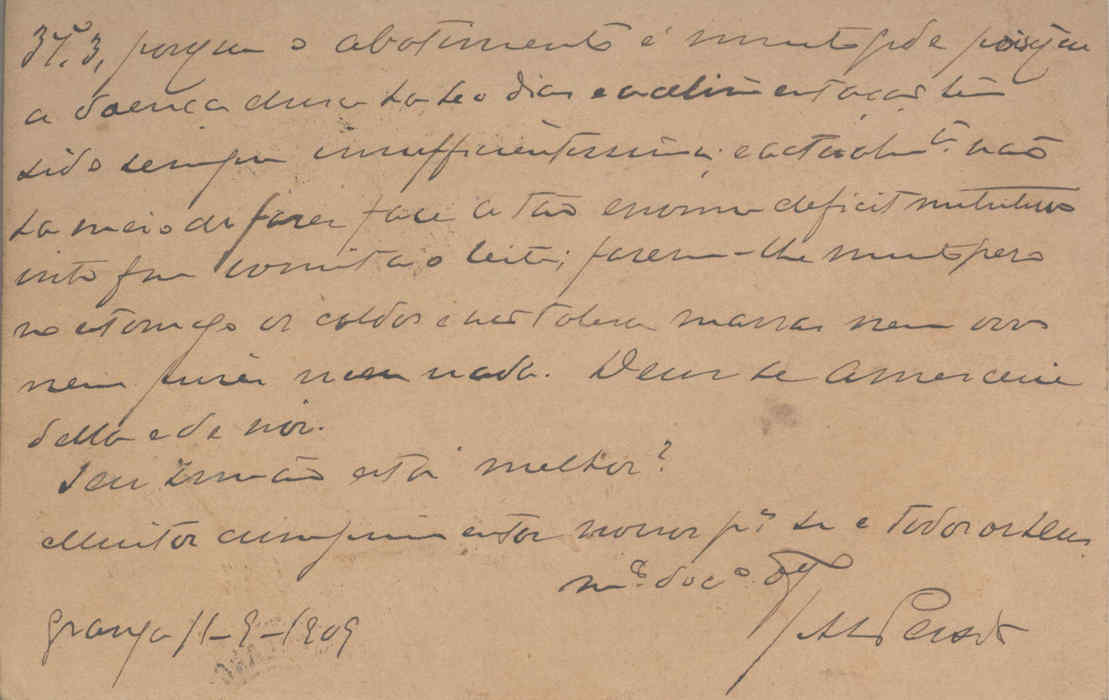 37º,3, porque o abatimento é muito gde pois que
a doença dura ha 40 dias e a alimentação tem
sido sempre insufficientissima; e actualmte não
ha meio de fazer face a tão enorme deficit nutritivo
visto que vomita o leite; fazem-lhe muito peso
no estomago os caldos e não tolera massas nem ovos
nem purée nem nada. Deus se amerceie
della e de nós.
Seu Irmão está melhor?
Muitos cumprimentos nossos pª si e todos os seus
Granja 11-9-1909